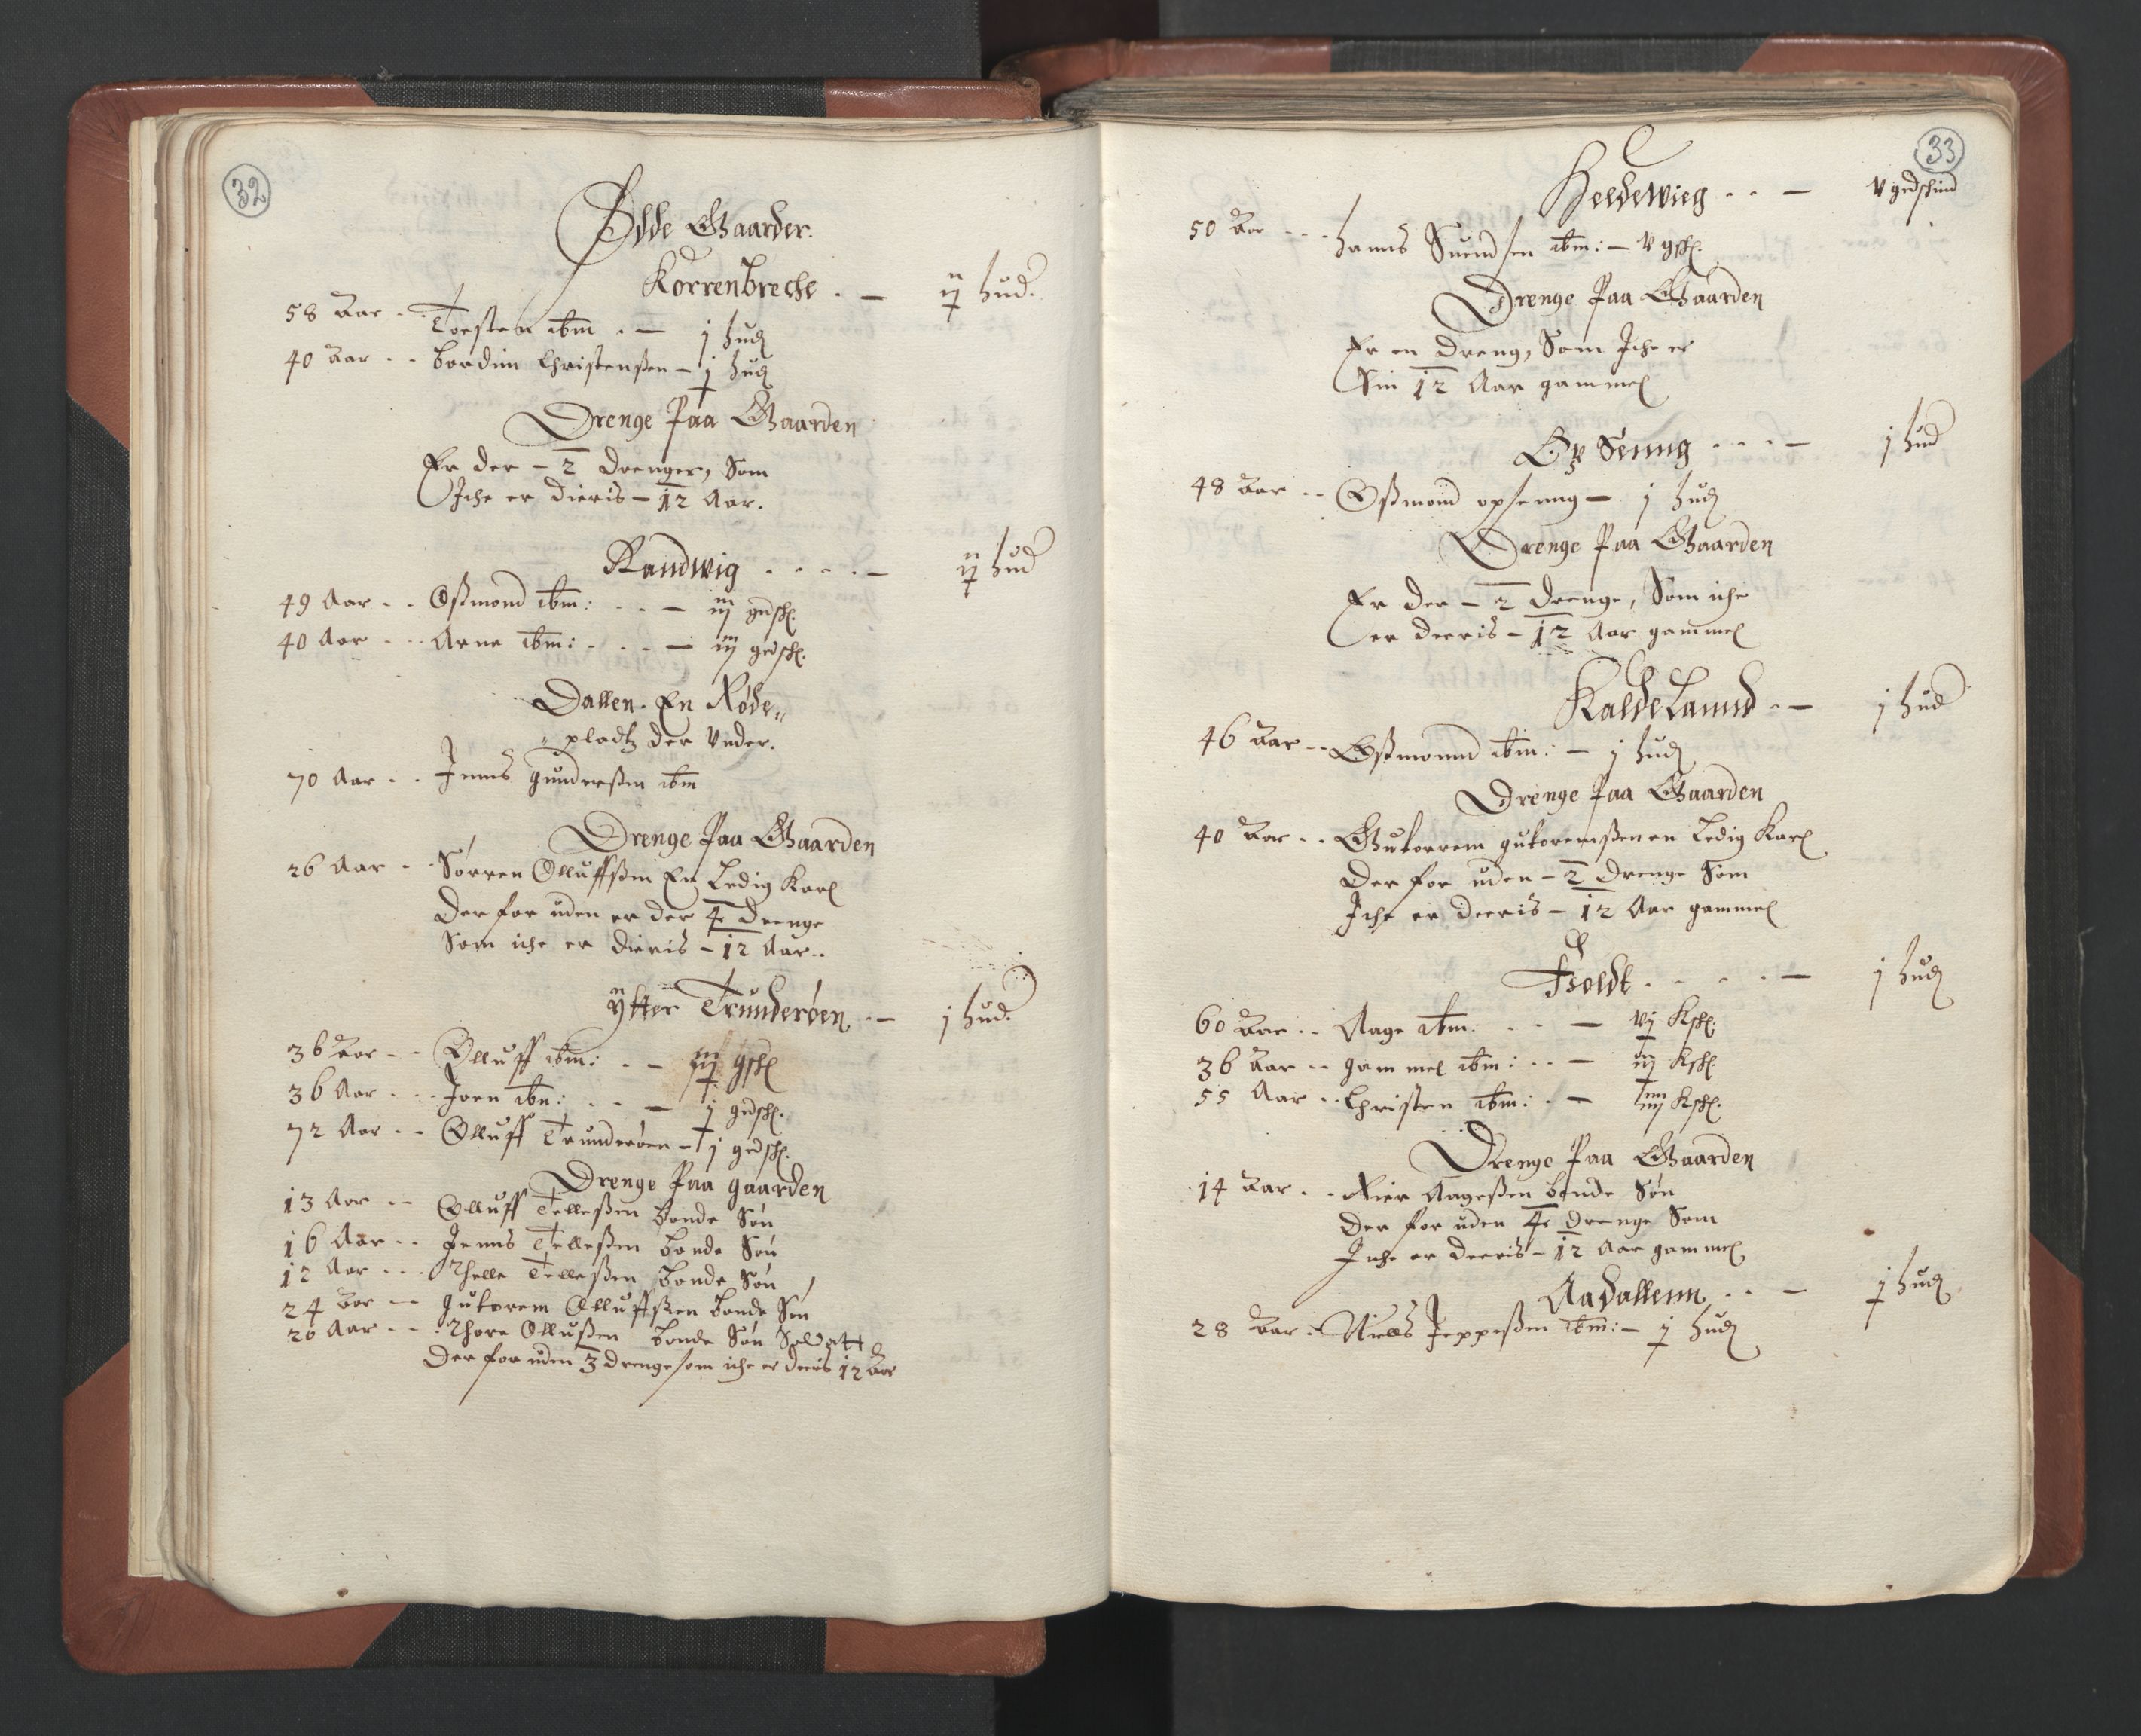 32
Ødde Gaarder.
Korrenbreche . — ij hud.
58 Aar . . Torsten ibm . — j hud
40 Aar . . Bordun Christensen — j hud
Drenge Paa Gaarden
Er der — 2 drenger, Som
Iche er dieris — 12 Aar.
Randwig . . . . — ij hud
49 Aar . . Oßmond ibm: . . — iij gedsk.
40 Aar . . Arne ibm: . . . — iij gedsk.
Dallen. En Røde„
„ pladtz der Under.
70 Aar . . Jenns gunderßen ibm
Drenge Paa Gaarden
26 Aar . . Sørren Olluffßen En Ledig Karl
Der for uden er der 4 drenge
Som iche er dieris — 12 Aar..
ÿtter Trunderøen . — j hud.
36 Aar . . Olluff ibm: . . — iij gsk
36 Aar . . Joen ibm: . . — j gedsk.
72 Aar . . Olluff Trunderøen — j gedsk.
Drenge Paa gaarden
13 Aar . . Olluff Telleßen bonde Søn
16 Aar . . Jenns Telleßen bonde Søn
12 Aar . . . Thelle Telleßen bonde Søn
24 Aar — gutorem Olluffßen bonde Søn
20 Aar . . Thore Ollußen bonde Søn Soldatt
Der for uden 3 drenge som iche er deris 12 Aar
33
Heldewieg . . — v gedskind
50 Aar . . . Hanns Suendsen ibm: — v gsk.
Drenge Paa Gaarden
Er en dreng, Som Iche er
Sin 12 Aar gammel
Op Seung . . . — j hud
48 Aar . . Oßmond opseung — j hud
Drenge Paa Gaarden
Er der — 2 drenge, Som iche
er deeris — 12 Aar gammel
Kaldelannd . — j hud
46 Aar . . Oßmonnd ibm: — j hud
Drenge Paa Gaarden
40 Aar . . Gutorrem gutoremßen en Ledig Karl
Der for uden — 2 drenge Som
Iche er deeris — 12 Aar gammel
Fsoldt . . . . — j hud
60 Aar . . Aage ibm: . . — vj Ksk.
36 Aar . . gammel ibm: . . — iij Ksk.
55 Aar . . Christen ibm: . — iiij Ksk.
Drenge Paa Gaarden
14 Aar . . Rier Aageßen bonde Søn
Der for uden 4 drenge Som
Iche er deeris — 12 Aar gammel
Aadallenn . . — j hud
28 Aar . Niells Jeppeßen ibm: — j hud